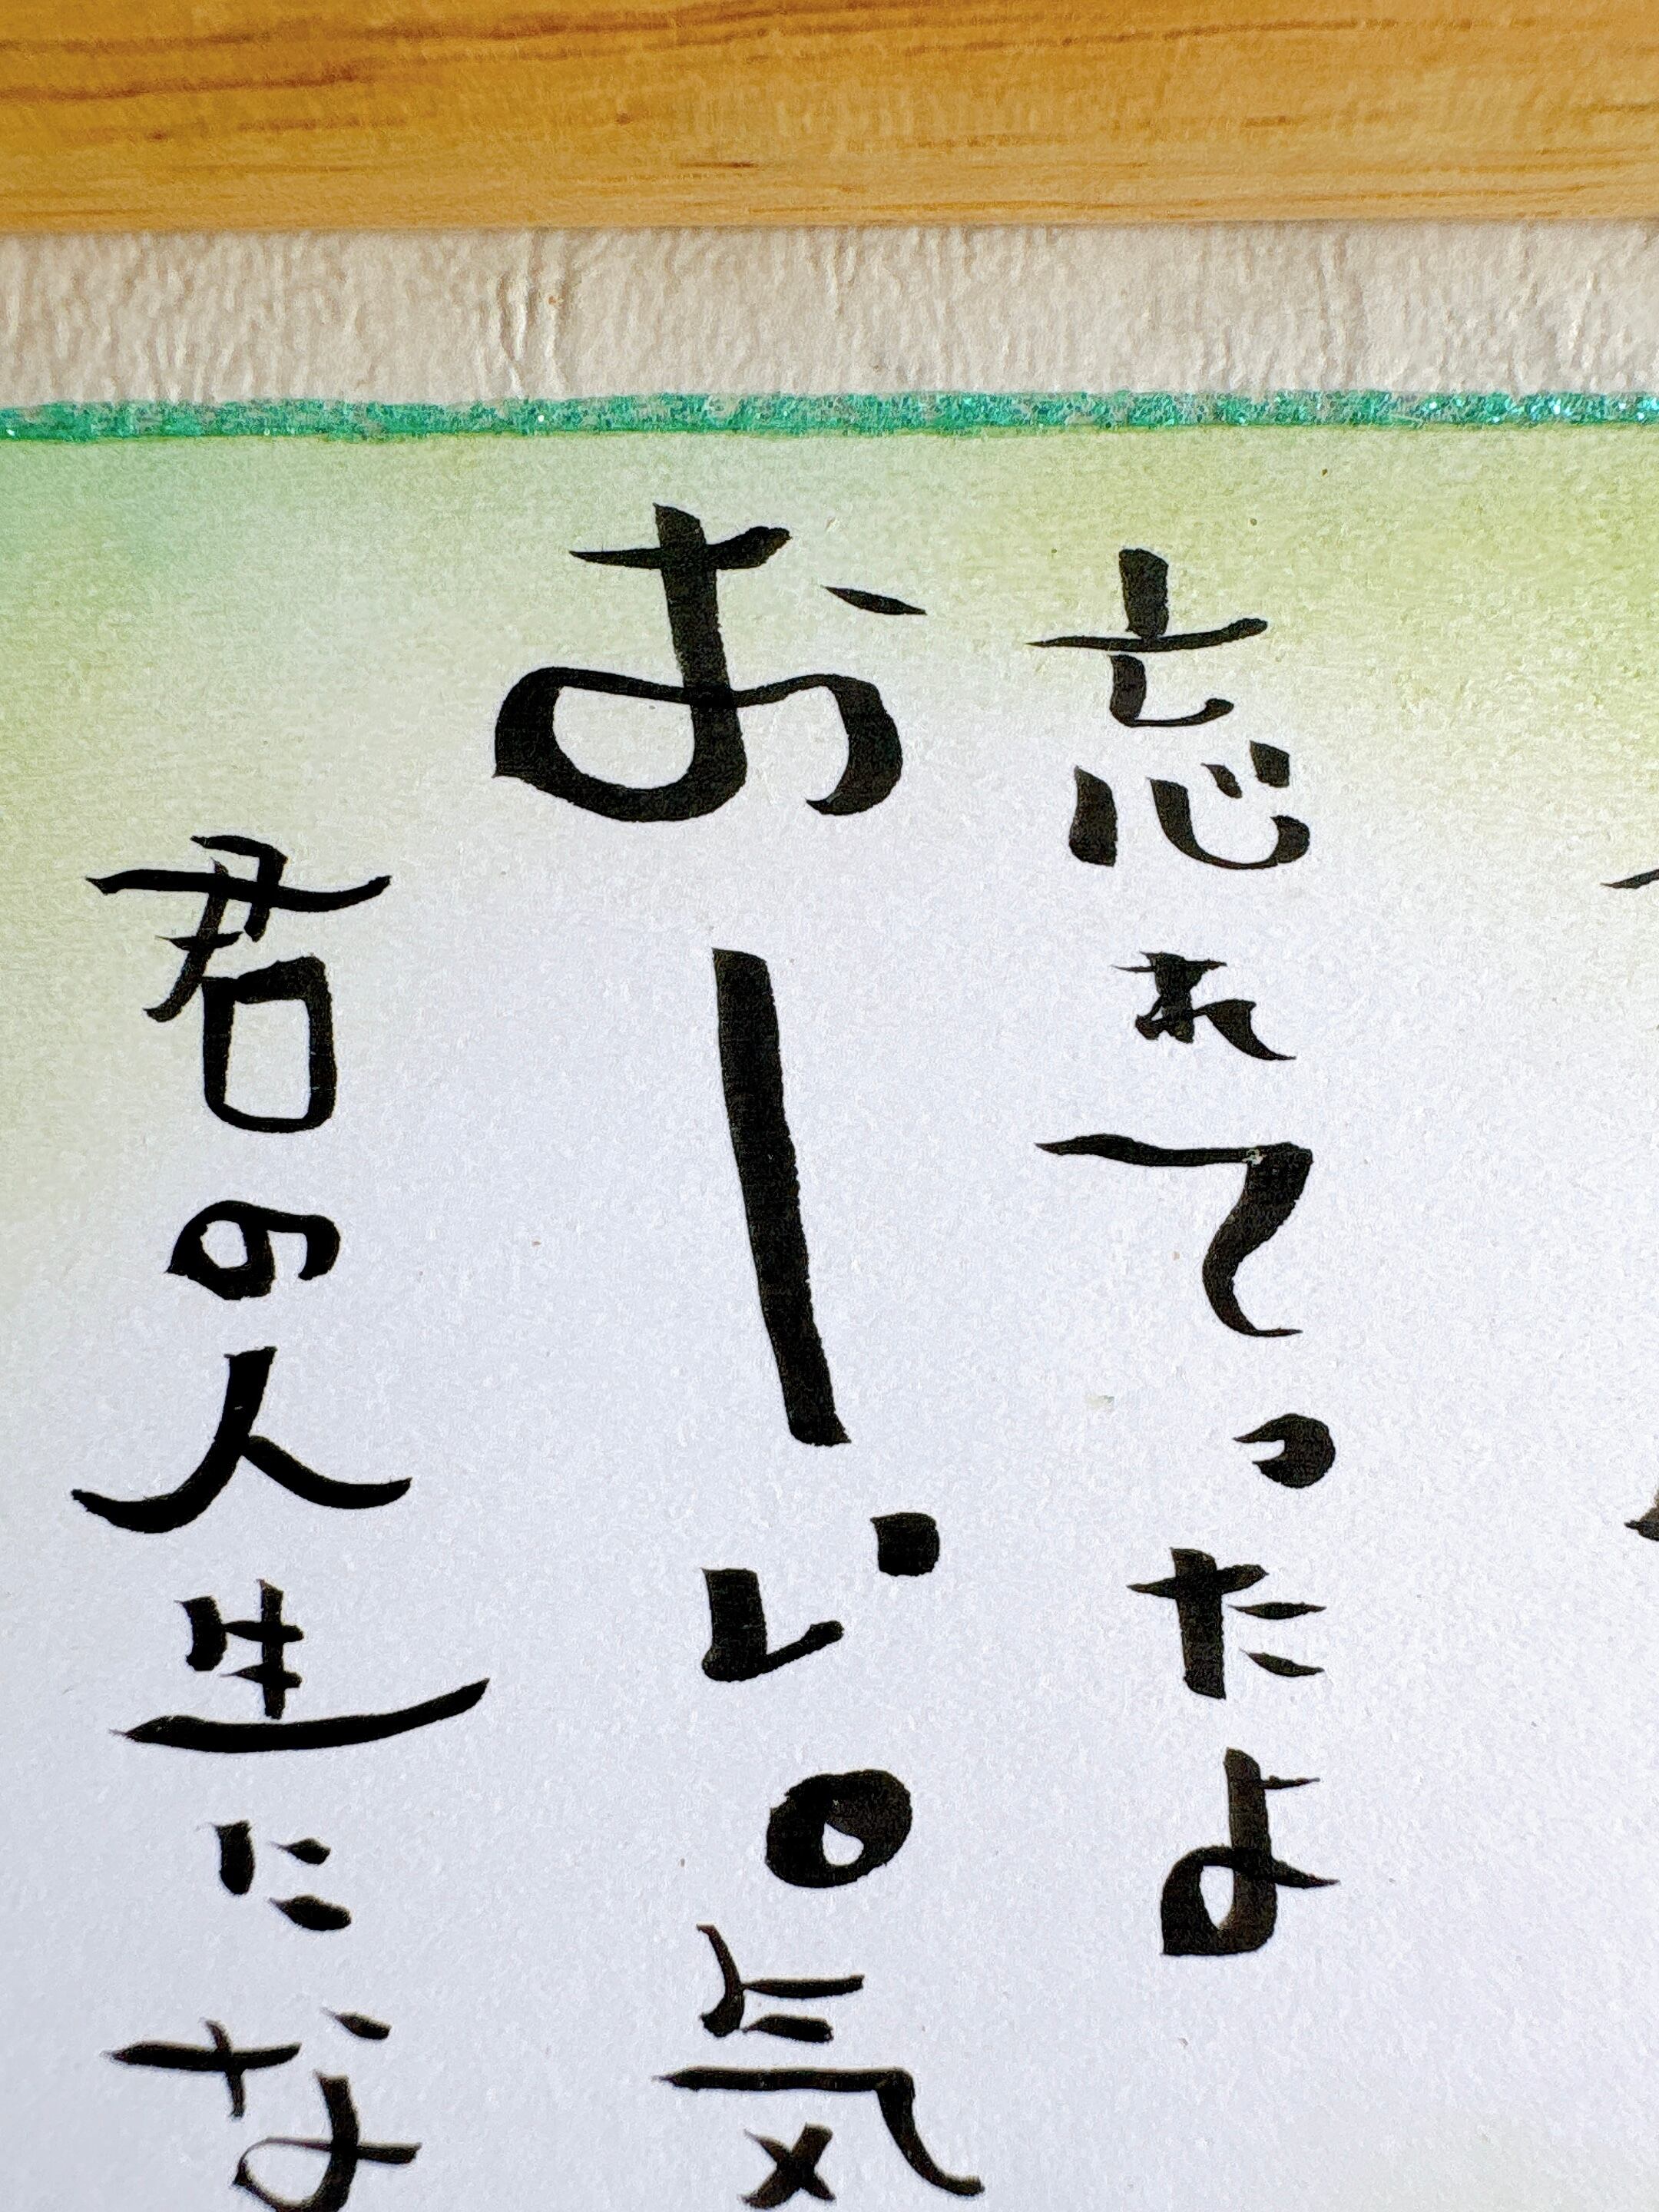 忘れてったよ
おーい。の気
君の人生にな